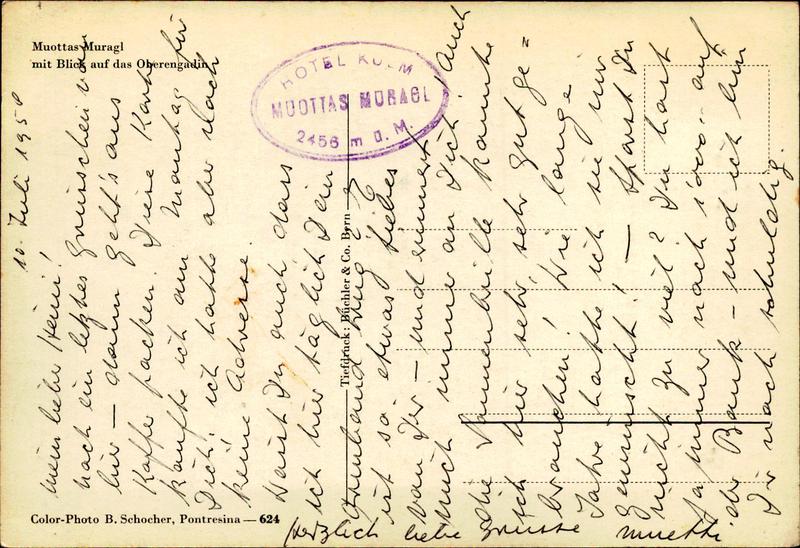 Muottas Muragl
mit Blick auf das Oberengadin
HOTEL KULM
MUOTTAS MURAGL
2456 m ü. M.
10. Juli 1958
mein lieber Heini!
noch ein letztes Grüsschen von
hier — dann geht's ans
Koffer packen. Diese Karte
kaufte ich am Montag für
Dich, ich hatte aber noch
keine Adresse.
Weisst Du auch, dass
ich hier täglich Dein
Armband trug? Es
ist so etwas liebes
von Dir — und erinnert
mich immer an Dich. Auch
die Sonnenbrille konnte
ich hier sehr, sehr gut ge=
brauchen! Wie lange
Jahre hatte ich sie mir
gewünscht! — Sparst Du
nicht zu viel? Du hast
ja immer noch 1000.- auf
der Bank — und ich bin
Dir noch schuldig.
Herzlich liebe Grüsse Muetti
Tiefdruck: Büchler & Co. Bern
Color-Photo B. Schocher, Pontresina — 624